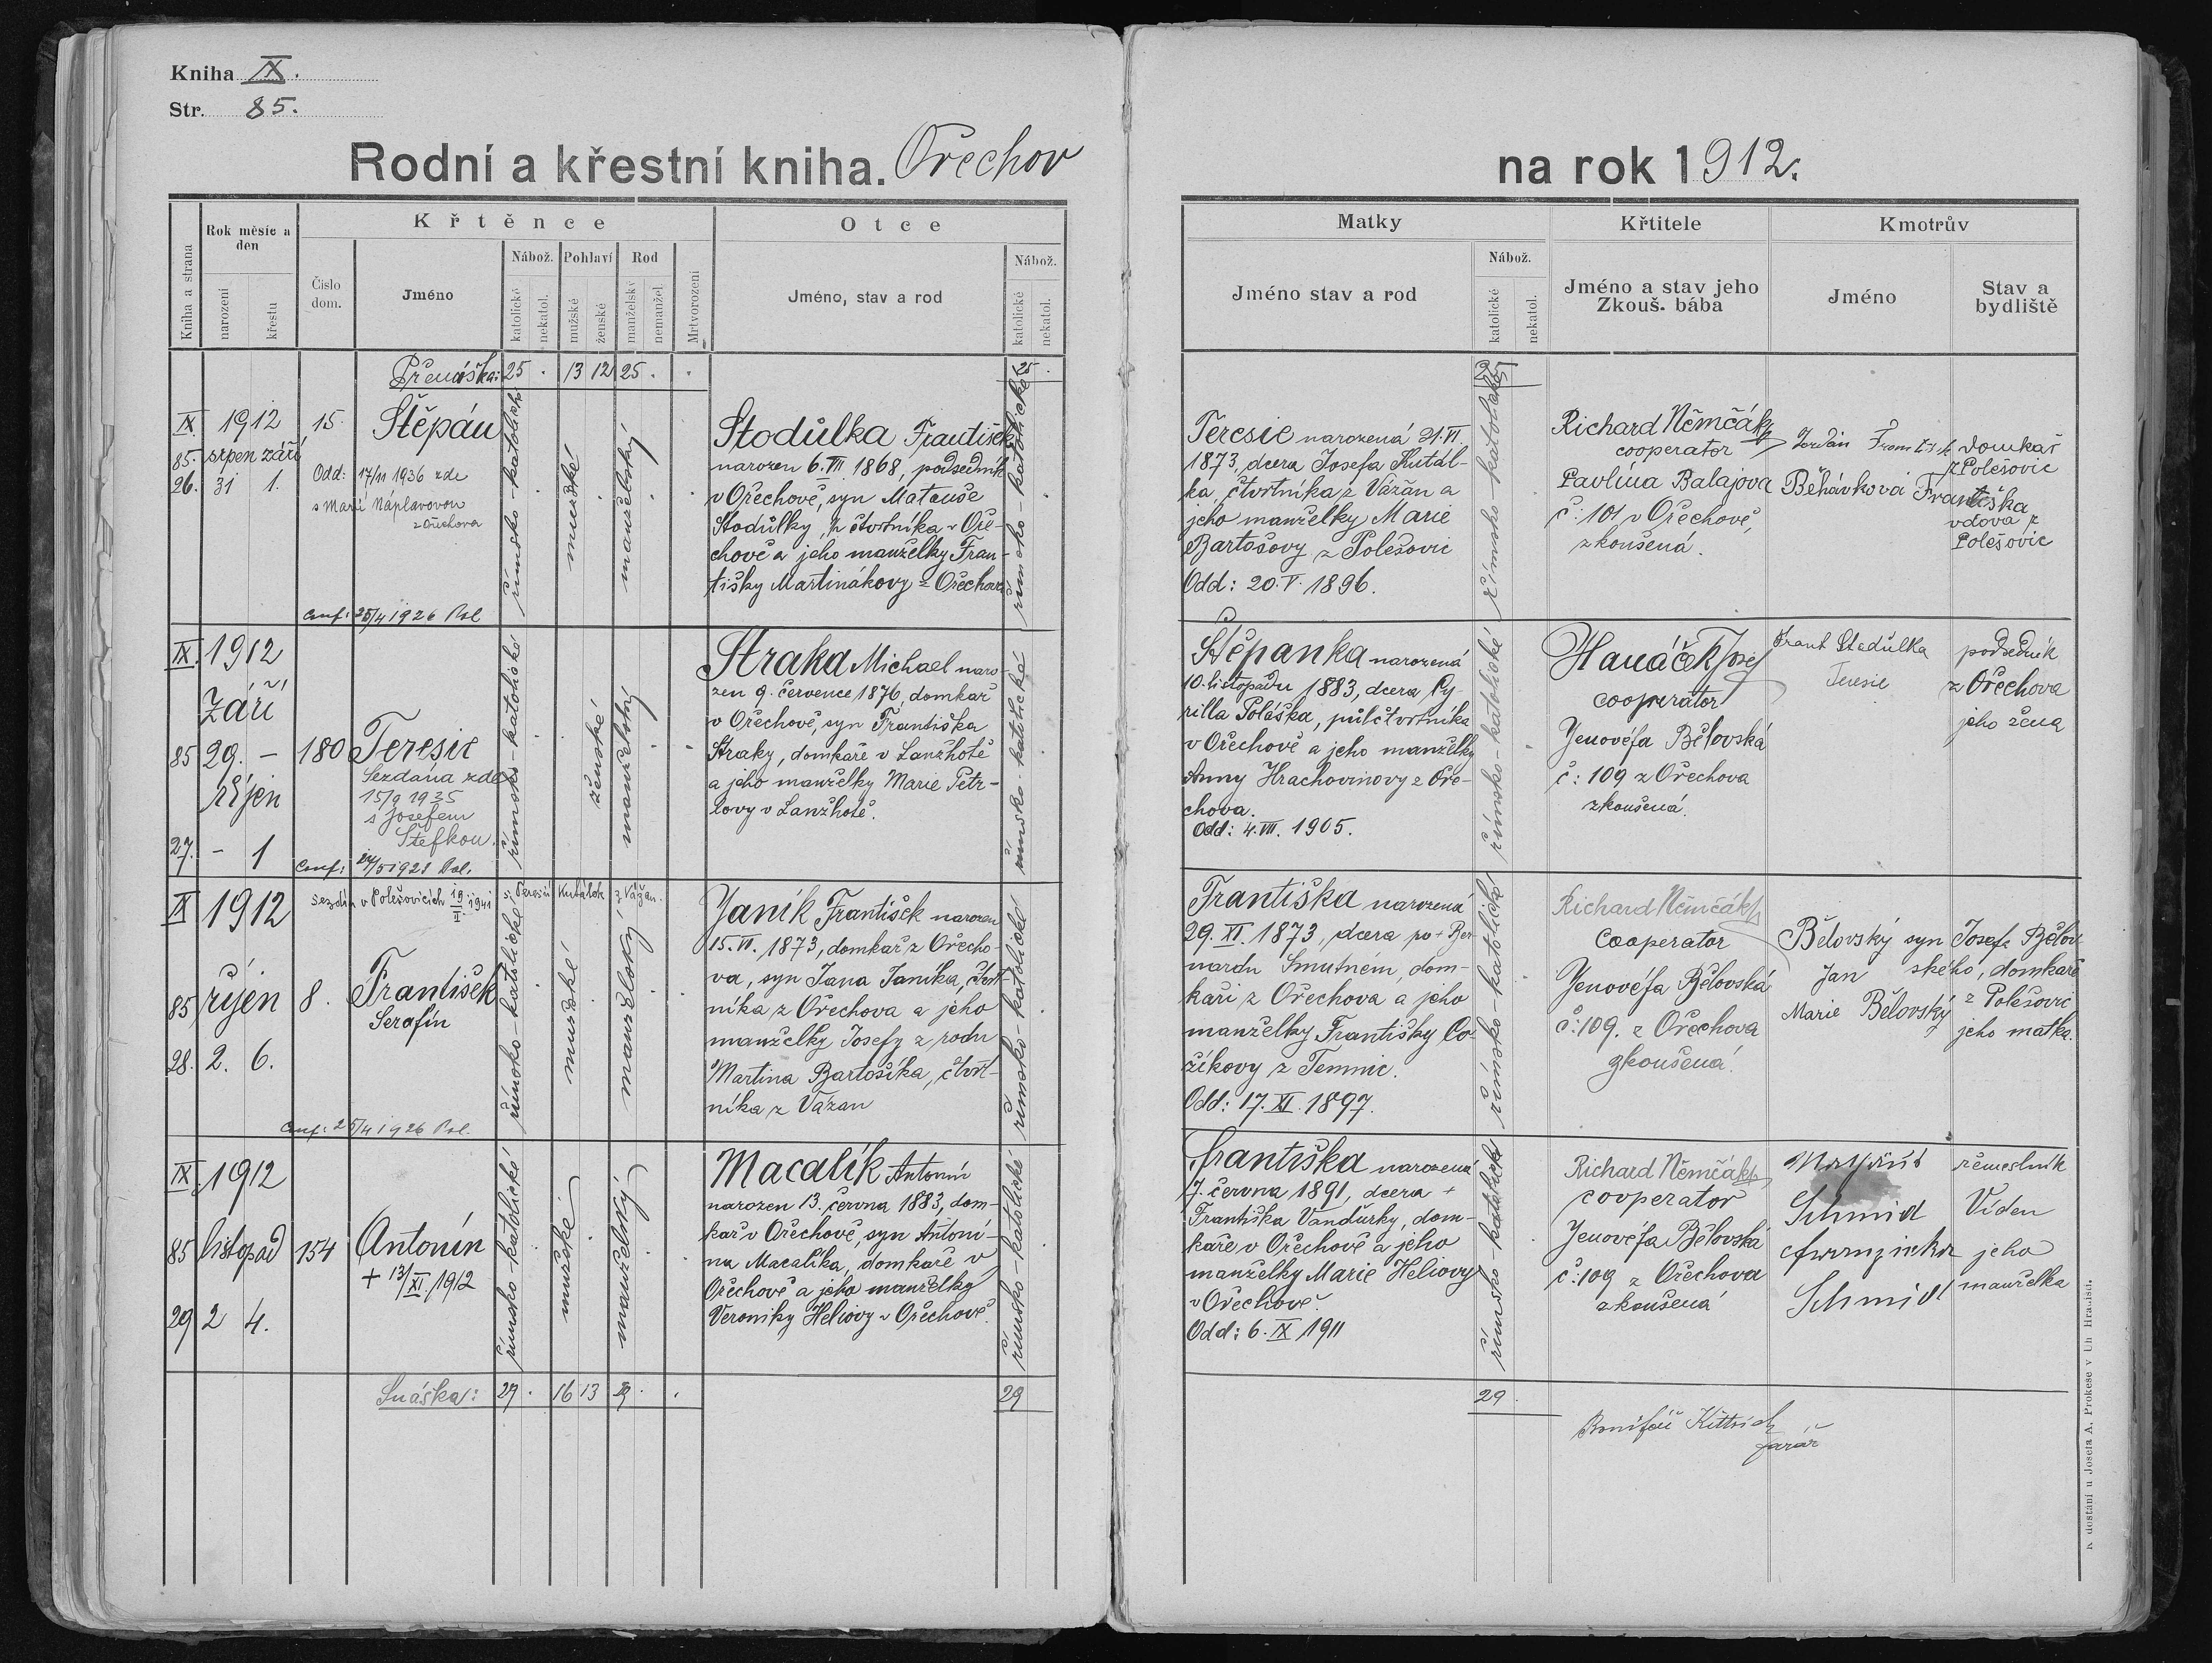 Kniha IX.
Str. 85.
Rodní a křestní kniha. Ořechov
na rok 1912.
Kniha a strana
Rok měsíc a den
narození
křestu
Číslo dom.
Křtěnce
Jméno
Nábož.
katolické
nekatol.
Pohlaví
mužské
ženské
Rod
manželský
nemanžel.
Mrtvorození
Otce
Jméno, stav a rod
Nábož.
katolické
nekatol.
Matky
Jméno stav a rod
Nábož.
katolické
nekatol.
Křtitele
Jméno a stav jeho
Zkouš. bába
Kmotrův
Jméno
Stav a bydliště
Přenáška: 25 . 13 12 25 . . 25 . 25
IX. 1912 15.
85. srpen září
26. 31 1.
Štěpán
Odd: 17/11 1936 zde
s Marií Náplavovou
z Ořechova
Conf: 25/4 1926 Pol
římsko-katolické
mužské
manželský
Stodůlka František
narozen 6. VII. 1868, podsedník
v Ořechově, syn Matouše
Stodůlky, čtvrtníka v Oře-
chově a jeho manželky Fran-
tišky Martinákovy z Ořechova
římsko-katolické
Teresie narozená 21. VI.
1873, dcera Josefa Kutál-
ka, čtvrtníka z Vážan a
jeho manželky Marie
Bartošovy z Polešovic
Odd: 20. V. 1896.
římsko-katolické
Richard Němčák
cooperator
Pavlína Balajova
č: 101 v Ořechově,
zkoušená.
Jordán František domkař
z Polešovic
Běhávková Františka
vdova z
Polešovic
IX. 1912
září
85 29. - 180
říjen
27. - 1
Teresie
Sezdána zde
15/9 1935
s Josefem
Štefkou.
Conf: 24/5 1928 Pol.
římsko-katolické
ženské
manželský
Straka Michael naro-
zen 9. července 1876, domkař
v Ořechově, syn Františka
Straky, domkaře v Lanžhotě
a jeho manželky Marie Petr-
lovy v Lanžhotě.
římsko-katolické
Štěpanka narozená
10. listopadu 1883, dcera Cy-
rilla Poláška, půlčtvrtníka
v Ořechově a jeho manželky
Anny Hrachovinovy z Oře-
chova.
Odd: 4. VII. 1905.
římsko-katolické
Hanáček Josef
cooperator
Jenovéfa Bělovská
č: 109 z Ořechova
zkoušená.
Frant Stodůlka podsedník
Teresie z Ořechova
jeho žena
IX 1912
sezdán v Polešovicích 19/II. 1941 s Teresií Kutálek z Vážan.
85 říjen 8.
28. 2. 6.
František
Serafín
Conf: 25/4 1926 Pol.
římsko-katolické
mužské
manželský
Janík František narozen
15. VI. 1873, domkař z Ořecho-
va, syn Jana Janíka, čtvrt-
níka z Ořechova a jeho
manželky Josefy z rodu
Martina Bartošíka, čtvrt-
níka z Vážan
římsko-katolické
Františka narozená
29. XI. 1873, dcera po + Ber-
nardu Smutném, dom-
kaři z Ořechova a jeho
manželky Františky Co-
žíkovy z Temnic.
Odd: 17. XI. 1897.
římsko-katolické
Richard Němčák
Cooperator
Jenovéfa Bělovská
č: 109. z Ořechova
zkoušená.
Bělovský syn Josefa Bělov-
Jan ského, domkaře
z Polešovic
Marie Bělovský jeho matka.
IX. 1912
85 listopad 154
29 2 4.
Antonín
+ 13/XI. 1912
římsko-katolické
mužské
manželský
Macalík Antonín
narozen 13. června 1883, dom-
kař v Ořechově, syn Antoní-
na Macalíka, domkaře v
Ořechově a jeho manželky
Veroniky Heliovy v Ořechově.
římsko-katolické
Františka narozená
7. června 1891, dcera +
Františka Vandůrky, dom-
kaře v Ořechově a jeho
manželky Marie Heliovy
v Ořechově.
Odd: 6. IX 1911
římsko-katolické
Richard Němčák
cooperator
Jenovéfa Bělovská
č: 109 z Ořechova
zkoušená
Schmid
řemeslník
Víden
Franziska
Schmid
jeho
manželka
Snáška: 29 . 16 13 29 . . 29 29 .
Bonifác Kittrich
farář
K dostání u Josefa A. Prokese v Uh Hradišti.